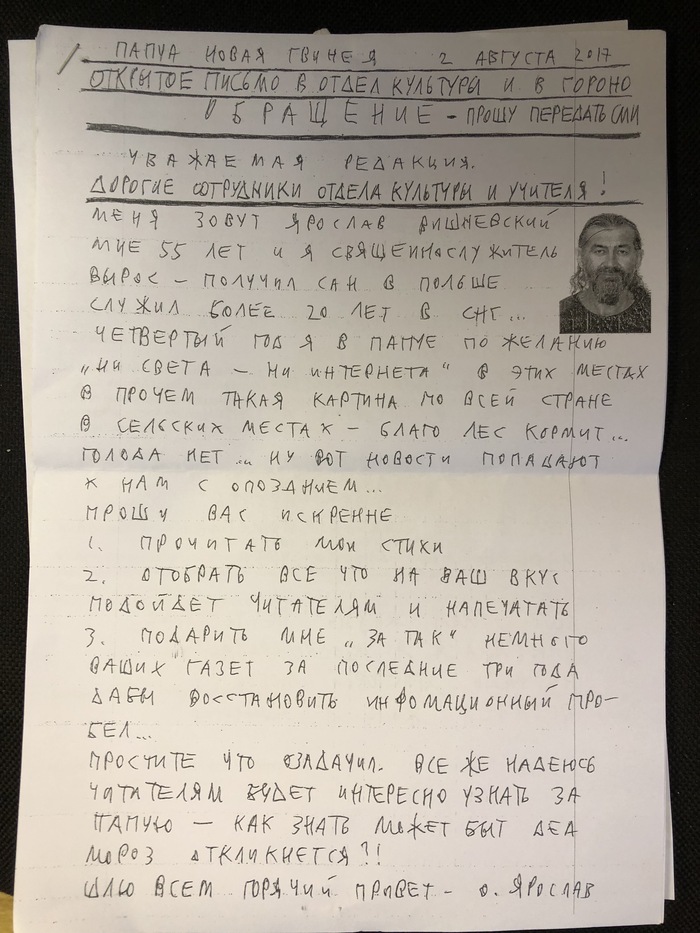 ПАПУА НОВАЯ ГВИНЕЯ 2 АВГУСТА 2017
ОТКРЫТОЕ ПИСЬМО В ОТДЕЛ КУЛЬТУРЫ И В ГОРОНО
ОБРАЩЕНИЕ - ПРОШУ ПЕРЕДАТЬ СМИ
УВАЖАЕМАЯ РЕДАКЦИЯ.
ДОРОГИЕ СОТРУДНИКИ ОТДЕЛА КУЛЬТУРЫ И УЧИТЕЛЯ!
МЕНЯ ЗОВУТ ЯРОСЛАВ ВИШНЕВСКИЙ
МНЕ 55 ЛЕТ И Я СВЯЩЕННОСЛУЖИТЕЛЬ
ВЫРОС - ПОЛУЧИЛ САН В ПОЛЬШЕ
СЛУЖИЛ БОЛЕЕ 20 ЛЕТ В СНГ...
ЧЕТВЕРТЫЙ ГОД Я В ПАПУЕ ПО ЖЕЛАНИЮ
„НИ СВЕТА - НИ ИНТЕРНЕТА" В ЭТИХ МЕСТАХ
В ПРОЧЕМ ТАКАЯ КАРТИНА ПО ВСЕЙ СТРАНЕ
В СЕЛЬСКИХ МЕСТАХ - БЛАГО ЛЕС КОРМИТ...
ГОЛОДА НЕТ... НУ ВОТ НОВОСТИ ПОПАДАЮТ
К НАМ С ОПОЗДНИЕМ...
ПРОШУ ВАС ИСКРЕННЕ
1. ПРОЧИТАТЬ МОИ СТИХИ
2. ОТОБРАТЬ ВСЕ ЧТО НА ВАШ ВКУС
ПОДОЙДЕТ ЧИТАТЕЛЯМ И НАПЕЧАТАТЬ
3. ПОДАРИТЬ МНЕ „ЗА ТАК" НЕМНОГО
ВАШИХ ГАЗЕТ ЗА ПОСЛЕДНИЕ ТРИ ГОДА
ДАБЫ ВОССТАНОВИТЬ ИНФОМАЦИОННЫЙ ПРО-
БЕЛ...
ПРОСТИТЕ ЧТО ОЗАДАЧИЛ. ВСЕ ЖЕ НАДЕЮСЬ
ЧИТАТЕЛЯМ БУДЕТ ИНТЕРЕСНО УЗНАТЬ ЗА
ПАПУЮ - КАК ЗНАТЬ МОЖЕТ БЫТ ДЕД
МОРОЗ ОТКЛИКНЕТСЯ?!
ШЛЮ ВСЕМ ГОРЯЧИЙ ПРИВЕТ - О. ЯРОСЛАВ